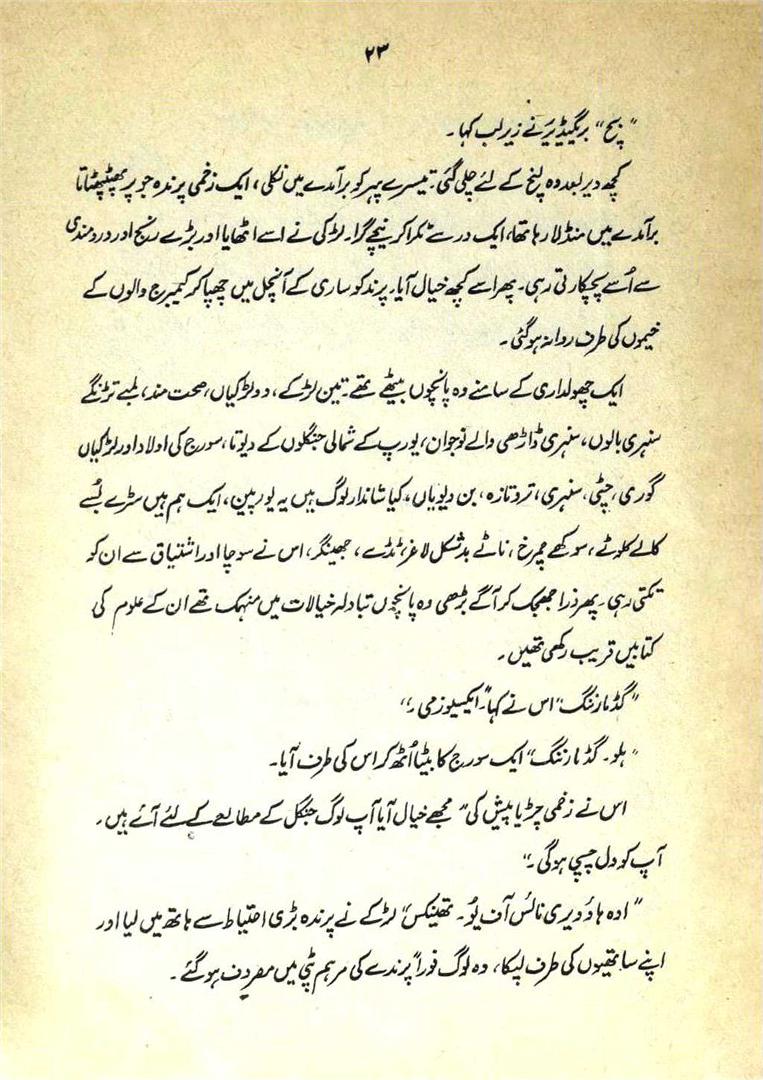 ۲۳
"پیچ" بریگیڈیر نے زیر لب کہا۔
کچھ دیر بعد وہ لنچ کے لئے چلی گئی۔ تیسرے پہر کو برآمدے میں نکلی، ایک زخمی پرندہ جو پر پھٹپھٹاتا
برآمدے میں منڈلا رہا تھا، ایک در سے ٹکرا کر نیچے گرا۔ لڑکی نے اسے اٹھایا اور بڑے رنج اور دردمندی
سے اُسے پچکارتی رہی۔ پھر اسے کچھ خیال آیا۔ پرند کو ساری کے آنچل میں چھپا کر کیمبرج والوں کے
خیموں کی طرف روانہ ہوگئی۔
ایک چھولداری کے سامنے وہ پانچوں بیٹھے تھے۔ تین لڑکے، دو لڑکیاں، صحت مند، لمبے تڑنگے
سنہری بالوں، سنہری ڈاڑھی والے نوجوان، یورپ کے شمالی جنگلوں کے دیوتا، سورج کی اولاد اور لڑکیاں
گوری، چٹی، سنہری، تروتازہ، بن دیویاں، کیا شاندار لوگ ہیں یہ یورپین، ایک ہم ہیں سڑے بُسے
کالے کلوٹے، سوکھے چمرخ، ناٹے بدشکل لاغر، ٹڈے، جھینگر، اس نے سوچا اور اشتیاق سے ان کو
تکتی رہی۔ پھر ذرا جھجک کر آگے بڑھی وہ پانچوں تبادلہ خیالات میں منہمک تھے ان کے علوم کی
کتابیں قریب رکھی تھیں۔
"گڈ مارننگ" اس نے کہا۔ "ایکسیوز می۔"
"ہلو۔ گڈ مارننگ" ایک سورج کا بیٹا اُٹھ کر اس کی طرف آیا۔
اس نے زخمی چڑیا پیش کی "مجھے خیال آیا آپ لوگ جنگل کے مطالعے کے لئے آئے ہیں۔
آپ کو دل چسپی ہوگی۔"
"اوہ ہاؤ ویری نائس آف یُو۔ تھینکس" لڑکے نے پرندہ بڑی احتیاط سے ہاتھ میں لیا اور
اپنے ساتھیوں کی طرف لپکا، وہ لوگ فوراً پرندے کی مرہم پٹی میں مصروف ہوگئے۔